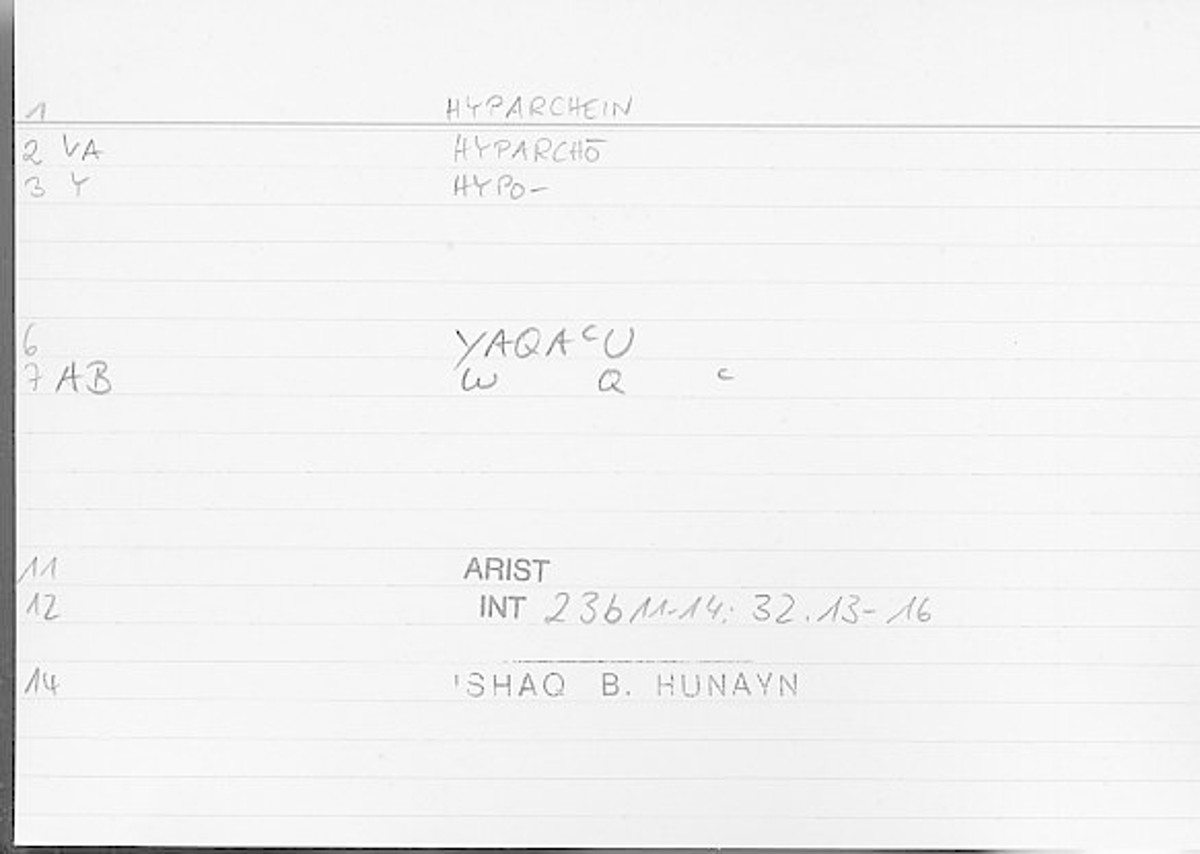 1 HYPARCHEIN
2 VA HYPARCHŌ
3 Y HYPO-
6 YAQAᶜU
7 AB W Q ᶜ
11 ARIST
12 INT 23b11-14: 32.13-16
14 'SHAQ B. HUNAYN